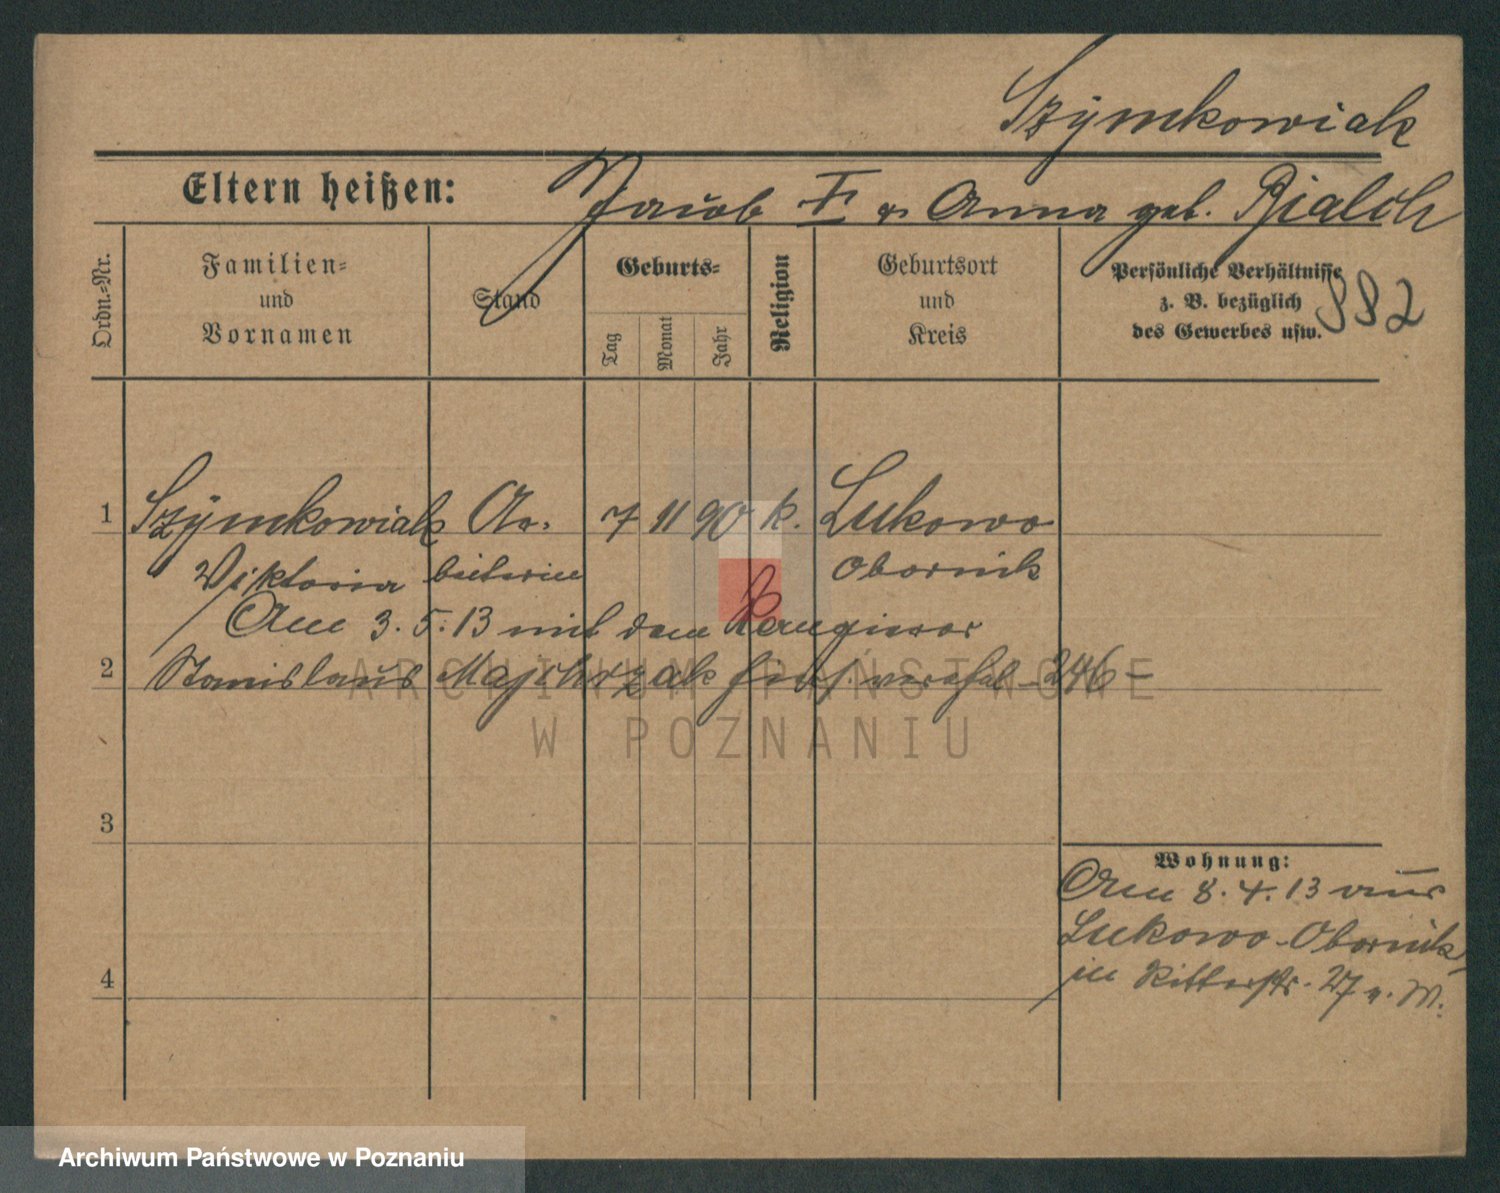 Szymkowiak
Eltern heißen: Jacob u. Anna geb. Bialch
Ordn.-Nr.
Familien-
und
Vornamen
Stand
Geburts-
Tag
Monat
Jahr
Religion
Geburtsort
und
Kreis
Persönliche Verhältnisse
z. B. bezüglich
des Gewerbes usw.
882
1 Szymkowiak Ar- 7 11 90 k. Lukowo
Viktoria beiterin Obornik
Am 3.5.13 mit dem
2 Stanislaus Majchrzak hies. verehel. 246
3
4
Wohnung:
Am 8.4.13 aus
Lukowo-Obornik
in Ritterstr. 27 b. M.
ARCHIWUM PAŃSTWOWE
W POZNANIU
Archiwum Państwowe w Poznaniu